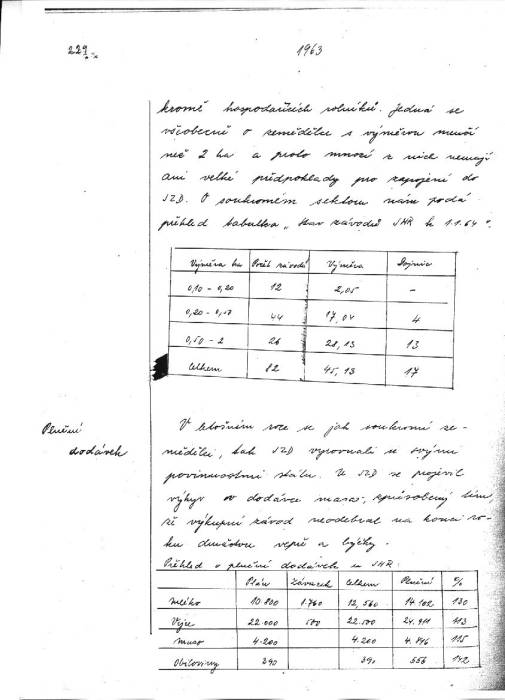 229
1963
kromě hospodařících rolníků. Jedná se
všeobecně o zemědělce s výměrou menší
než 2 ha a proto mnozí z nich nemají
ani velké předpoklady pro zapojení do
JZD. O soukromém sektoru nám podá
přehled tabulka „Stav závodů JHR k 1.1.64".
Výměra ha Počet závodů Výměra Dojnic
0,10 - 0,20 12 2,05 -
44 17,04 4
0,50 - 2 26 28,13 13
Celkem 82 45,13 17
Plnění
dodávek
V letošním roce se jak soukromí ze-
mědělci, tak JZD vyrovnali se svými
povinnostmi státu. U JZD se projevil
výkyv v dodávce masa, způsobený tím,
že výkupní závod neodebral na konci ro-
ku družstvu vepře a býčky.
Přehled o plnění dodávek u JHR:
Plán Závazek Celkem Plnění %
Mléko 10.800 1.760 12,560 14.102 130
Vejce 22.000 500 22.500 24.911 113
Maso 4.200 4.200 4.846 115
Obiloviny 390 390 556 142